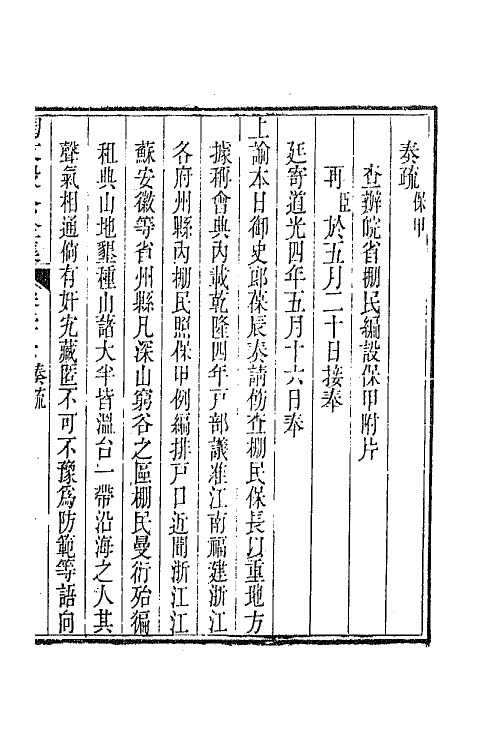 奏疏保甲
查辦皖省棚民編設保甲附片
再臣於五月二十日接奉
廷寄道光四年五月十六日奉
上諭本日御史郎葆辰奏請飭查棚民保長以重地方
據稱會典內載乾隆四年戶部議准江南福建浙江
各府州縣內棚民照保甲例編排戶口近聞浙江江
蘇安徽等省州縣凡深山窮谷之區棚民曼衍殆徧
租典山地墾種山諸大半皆溫台一帶沿海之人其
聲氣相通倘有奸宄藏匿不可不豫爲防範等語向
奏疏